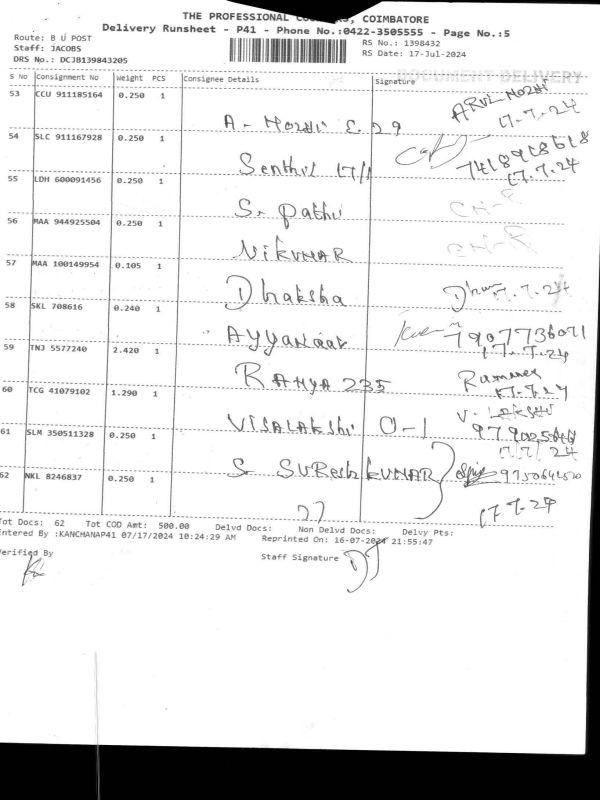 THE PROFESSIONAL COURIERS, COIMBATORE
Delivery Runsheet - P41 - Phone No.:0422-3505555 - Page No.:5
Route: B U POST
RS No.: 1398432
Staff: JACOBS
RS Date: 17-Jul-2024
DRS No.: DCJB139843205
DOCUMENT DELIVERY
S No Consignment No Weight PCS Consignee Details Signature
53 CCU 911185164 0.250 1 A - Mozhi E. 29 ARUL MOZHI
17.7.24
54 SLC 911167928 0.250 1 Senthil 17/1 7418918618
17.7.24
55 LDH 600091456 0.250 1 S. pathi
56 MAA 944925504 0.250 1 NIKUMAR
57 MAA 100149954 0.105 1 Dhaksha 17.7.24
58 SKL 708616 0.240 1 AYYANAAR 7907736071
17.7.24
59 TNJ 5577240 2.420 1 RAMYA 235
17.7.24
60 TCG 41079102 1.290 1 VISALAKShi O-1
17/7/24
61 SLM 350511328 0.250 1 S. SURESh KUMAR
62 NKL 8246837 0.250 1 27 17.7.24
Tot Docs: 62 Tot COD Amt: 500.00 Delvd Docs: Non Delvd Docs: Delvy Pts:
Entered By :KANCHANAP41 07/17/2024 10:24:29 AM Reprinted On: 16-07-2024 21:55:47
Verified By Staff Signature